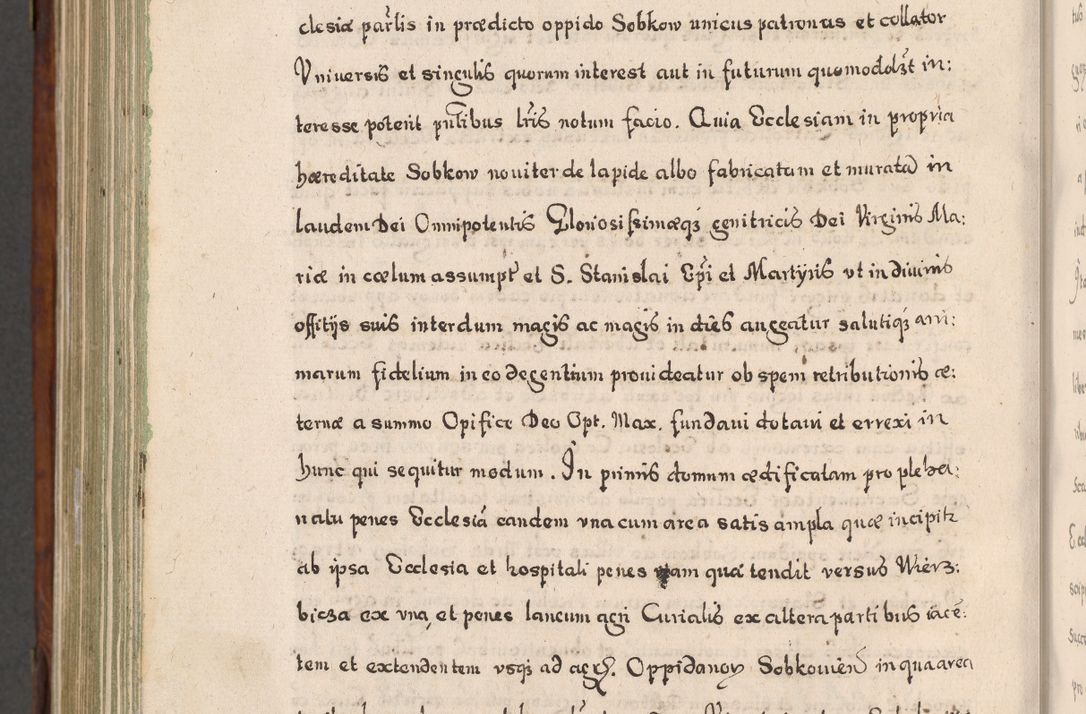 clesiæ par̃lis in prædicto oppido Sobkow unicus patronus et collator
Vniuersis et singulis quorum interest aut in futurum quomodolꝫt in:
teresse poterit pñtibus lr̃is notum facio. Quia Ecclesiam in propria
hæreditate Sobkow nouiter de lapide albo fabricatam et muratã in
laudem Dei Omnipotentis Gloriosissimæqꝫ genitricis Dei Virginis Ma:
riæ in cœlum assumpt̃ et S. Stanislai Ep̃i et Martyris vt in diuinis
offitijs suis interdum magis ac magis in dies augeatur salutiqꝫ ani:
marum fidelium in eo degentium prouideatur ob spem retributionis æ:
ternæ a summo Opifice Deo Opt. Max. fundaui dotaui et errexi in
hunc qui sequitur modum. In primis domum ædificatam pro pleba:
natu penes Ecclesiã eandem vna cum area satis ampla quæ incipit
ab ipsa Ecclesia et hospitali penes viam quæ tendit versus Wierz:
bicza ex vna, et penes laneum agri Curialis ex altera partibus iacẽ:
tem et extendentem vsqꝫ ad agꝝ Oppidanoꝝ Sobkouien̄ in qua area